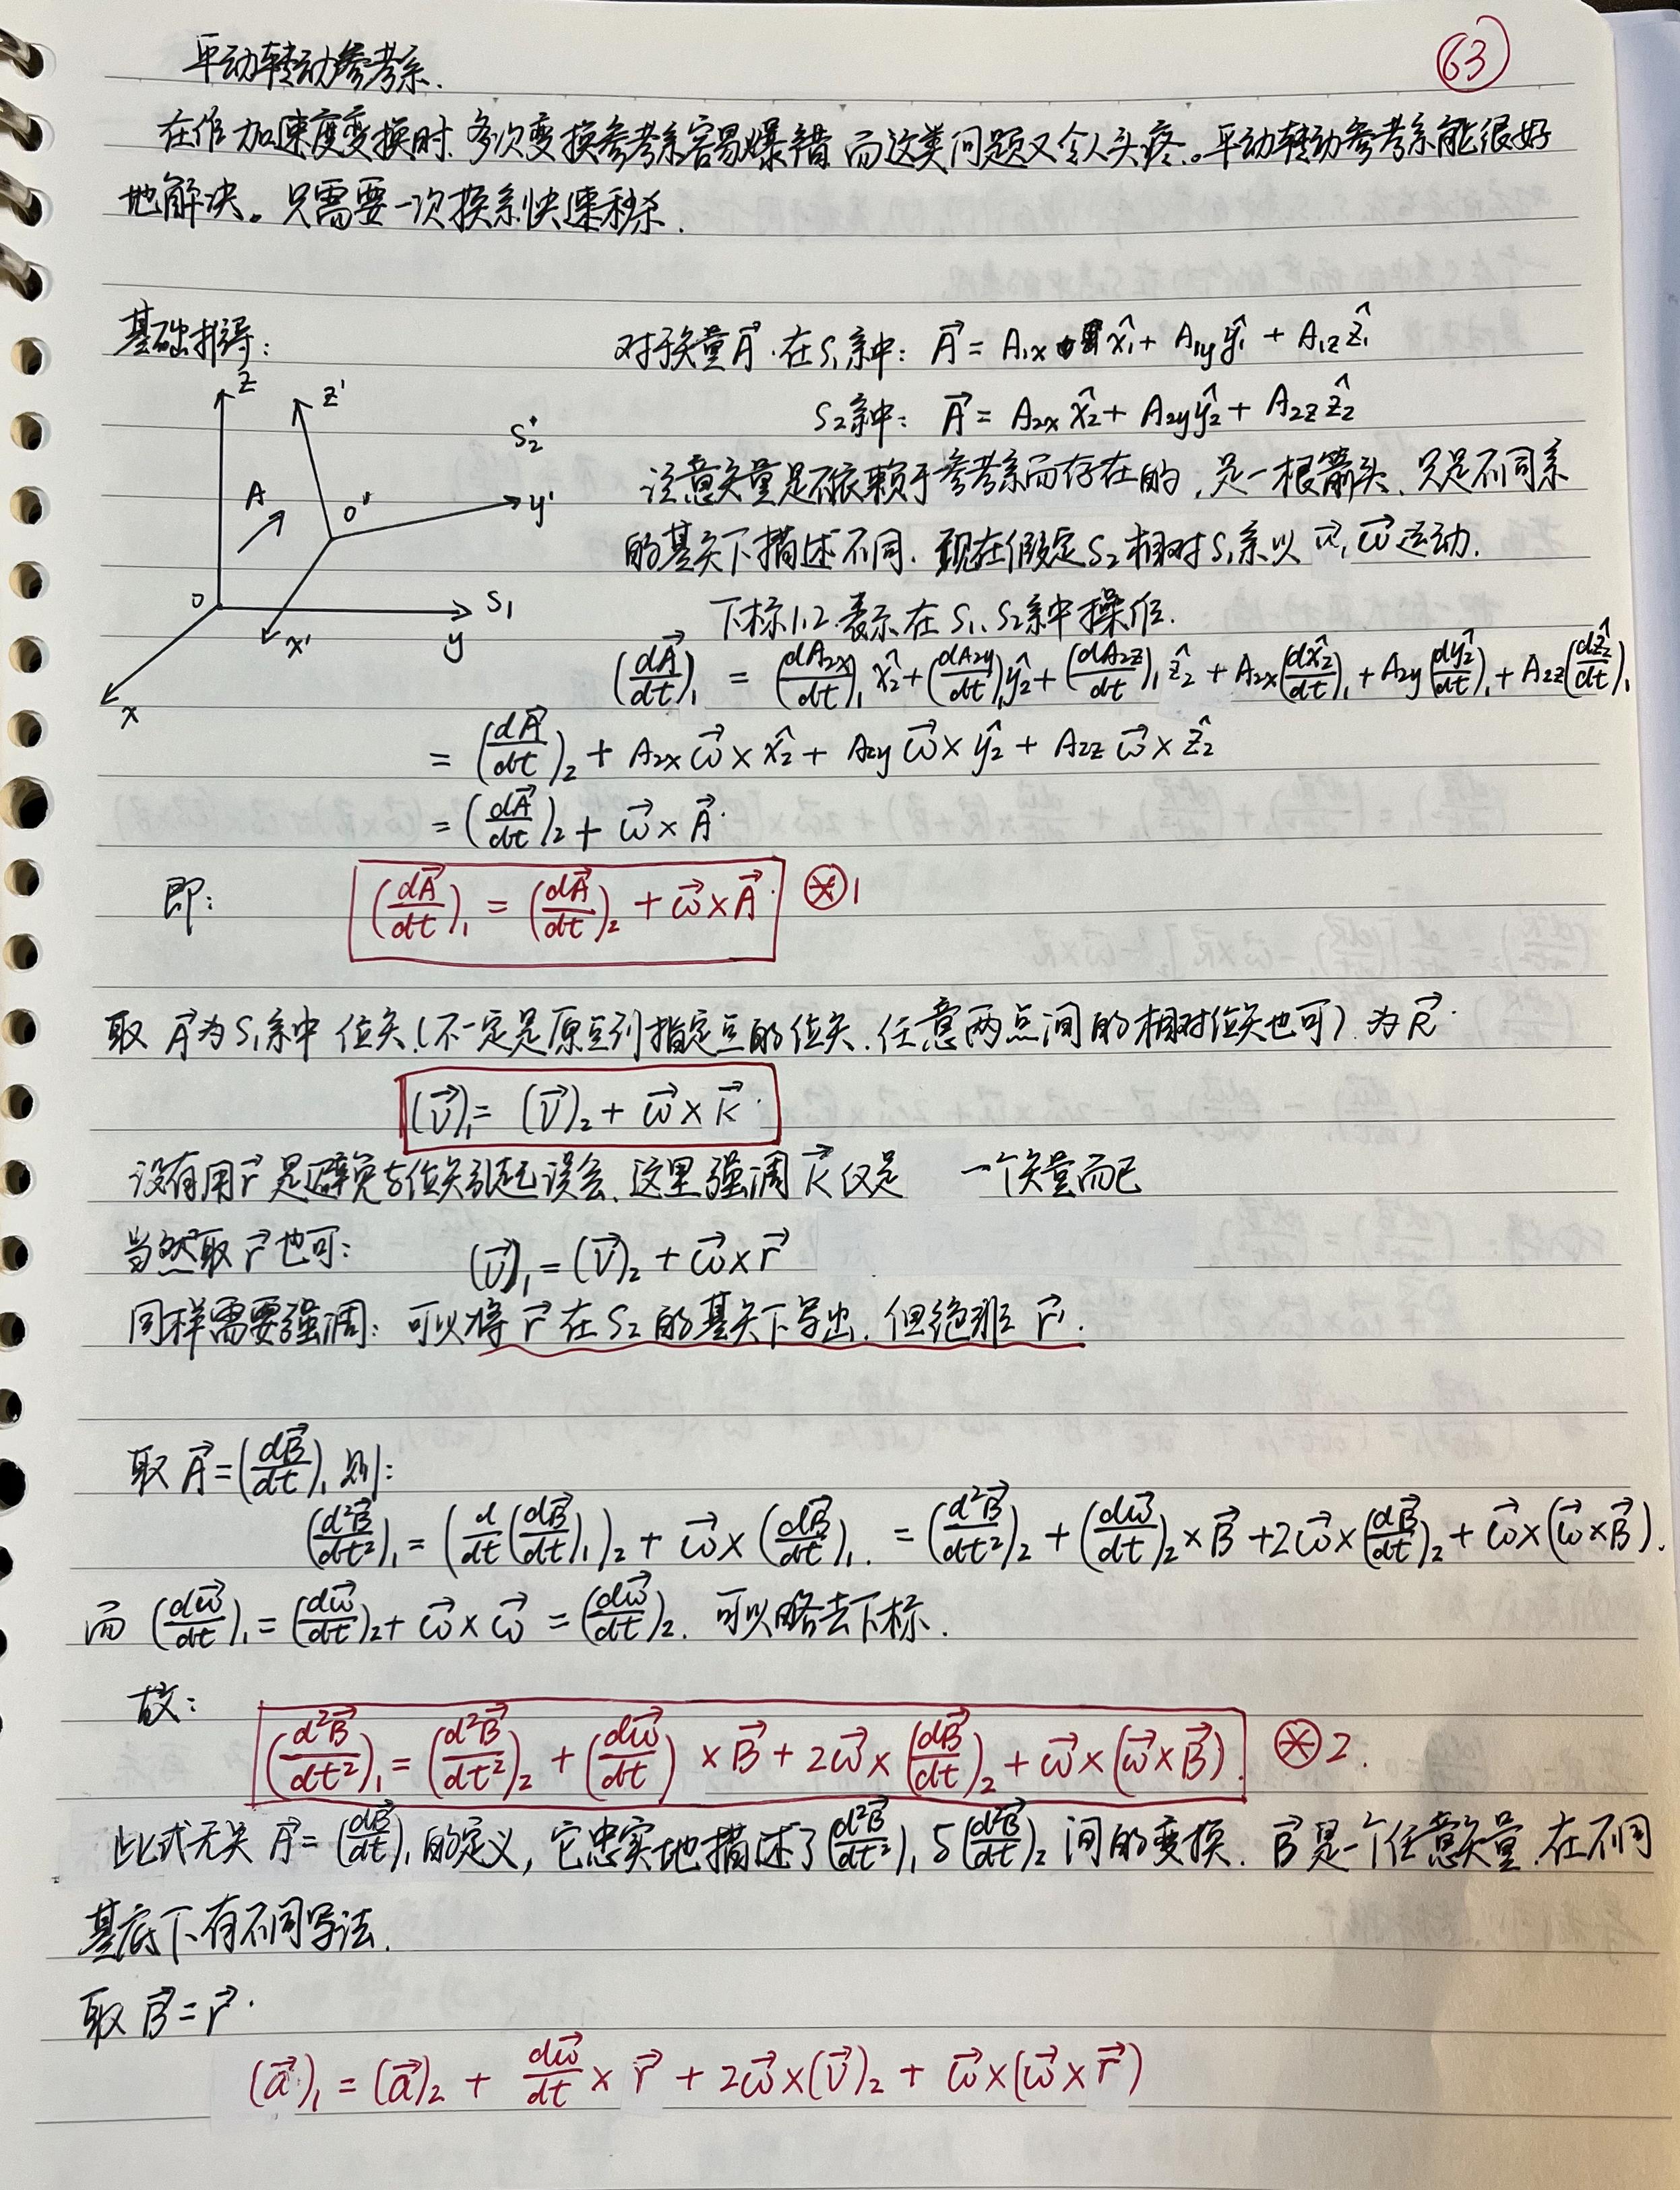 63
平动转动参考系.
在作加速度变换时.多次变换参考系容易爆错而这类问题又令人头疼。平动转动参考系能很好
地解决。只需要一次换系快速秒杀.
基础推导:
对于矢量A⃗.在S₁系中: A⃗ = A₁ₓ x̂₁ + A₁y ŷ₁ + A₁z ẑ₁
S₂系中: A⃗ = A₂ₓ x̂₂ + A₂y ŷ₂ + A₂z ẑ₂
注意矢量是不依赖于参考系而存在的,是一根箭头.只是不同系
的基矢下描述不同. 现在假定S₂相对S₁系以 u⃗, ω⃗ 运动.
下标1,2.表示在S₁、S₂系中操作.
z
z'
S₂
A
o'
y'
o
S₁
x'
y
x
(dA⃗/dt)₁ = (dA₂ₓ/dt)₁ x̂₂ + (dA₂y/dt)₁ ŷ₂ + (dA₂z/dt)₁ ẑ₂ + A₂ₓ(dx̂₂/dt)₁ + A₂y(dŷ₂/dt)₁ + A₂z(dẑ₂/dt)₁
= (dA⃗/dt)₂ + A₂ₓ ω⃗ × x̂₂ + A₂y ω⃗ × ŷ₂ + A₂z ω⃗ × ẑ₂
= (dA⃗/dt)₂ + ω⃗ × A⃗.
即: (dA⃗/dt)₁ = (dA⃗/dt)₂ + ω⃗ × A⃗. ⊛1
取 A⃗为S₁系中 位矢.(不一定是原点到指定点的位矢.任意两点间的相对位矢也可).为R⃗.
(v⃗)₁ = (v⃗)₂ + ω⃗ × R⃗.
没有用r⃗是避免与位矢引起误会.这里强调R⃗仅是 一个矢量而已
当然取r⃗也可: (v⃗)₁ = (v⃗)₂ + ω⃗ × r⃗
同样需要强调: 可以将 r⃗ 在S₂的基矢下写出.但绝非 r⃗'.
取 A⃗ = (dB⃗/dt)₁ 则:
(d²B⃗/dt²)₁ = (d/dt(dB⃗/dt)₁)₂ + ω⃗ × (dB⃗/dt)₁. = (d²B⃗/dt²)₂ + (dω⃗/dt)₂ × B⃗ + 2ω⃗ × (dB⃗/dt)₂ + ω⃗ × (ω⃗ × B⃗).
而 (dω⃗/dt)₁ = (dω⃗/dt)₂ + ω⃗ × ω⃗ = (dω⃗/dt)₂. 可以略去下标.
故:
(d²B⃗/dt²)₁ = (d²B⃗/dt²)₂ + (dω⃗/dt) × B⃗ + 2ω⃗ × (dB⃗/dt)₂ + ω⃗ × (ω⃗ × B⃗). ⊛2.
此式无关 A⃗ = (dB⃗/dt)₁ 的定义, 它忠实地描述了(d²B⃗/dt²)₁ 与 (d²B⃗/dt²)₂ 间的变换. B⃗是一个任意矢量.在不同
基底下有不同写法.
取 B⃗ = r⃗.
(a⃗)₁ = (a⃗)₂ + dω⃗/dt × r⃗ + 2ω⃗ × (v⃗)₂ + ω⃗ × (ω⃗ × r⃗)